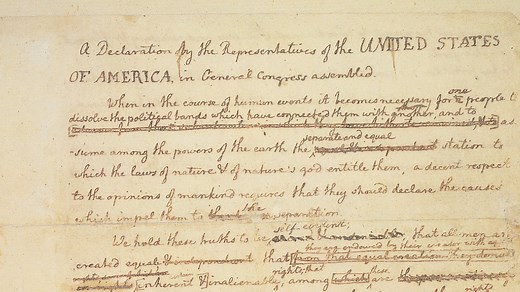 A Declaration by the Representatives of the UNITED STATES
OF AMERICA, in General Congress assembled.
When in the course of human events it becomes necessary for one people to
dissolve the political bands which have connected them with another, and to
as-
separate and equal
-sume among the powers of the earth the station to
which the laws of nature & of nature's god entitle them, a decent respect
to the opinions of mankind requires that they should declare the causes
which impel them to the separation.
self-evident;
We hold these truths to be that all men are
they are endowed by their creator with
created equal & independent that from that equal creation they derive
rights; that
inherent & inalienable, among which these are